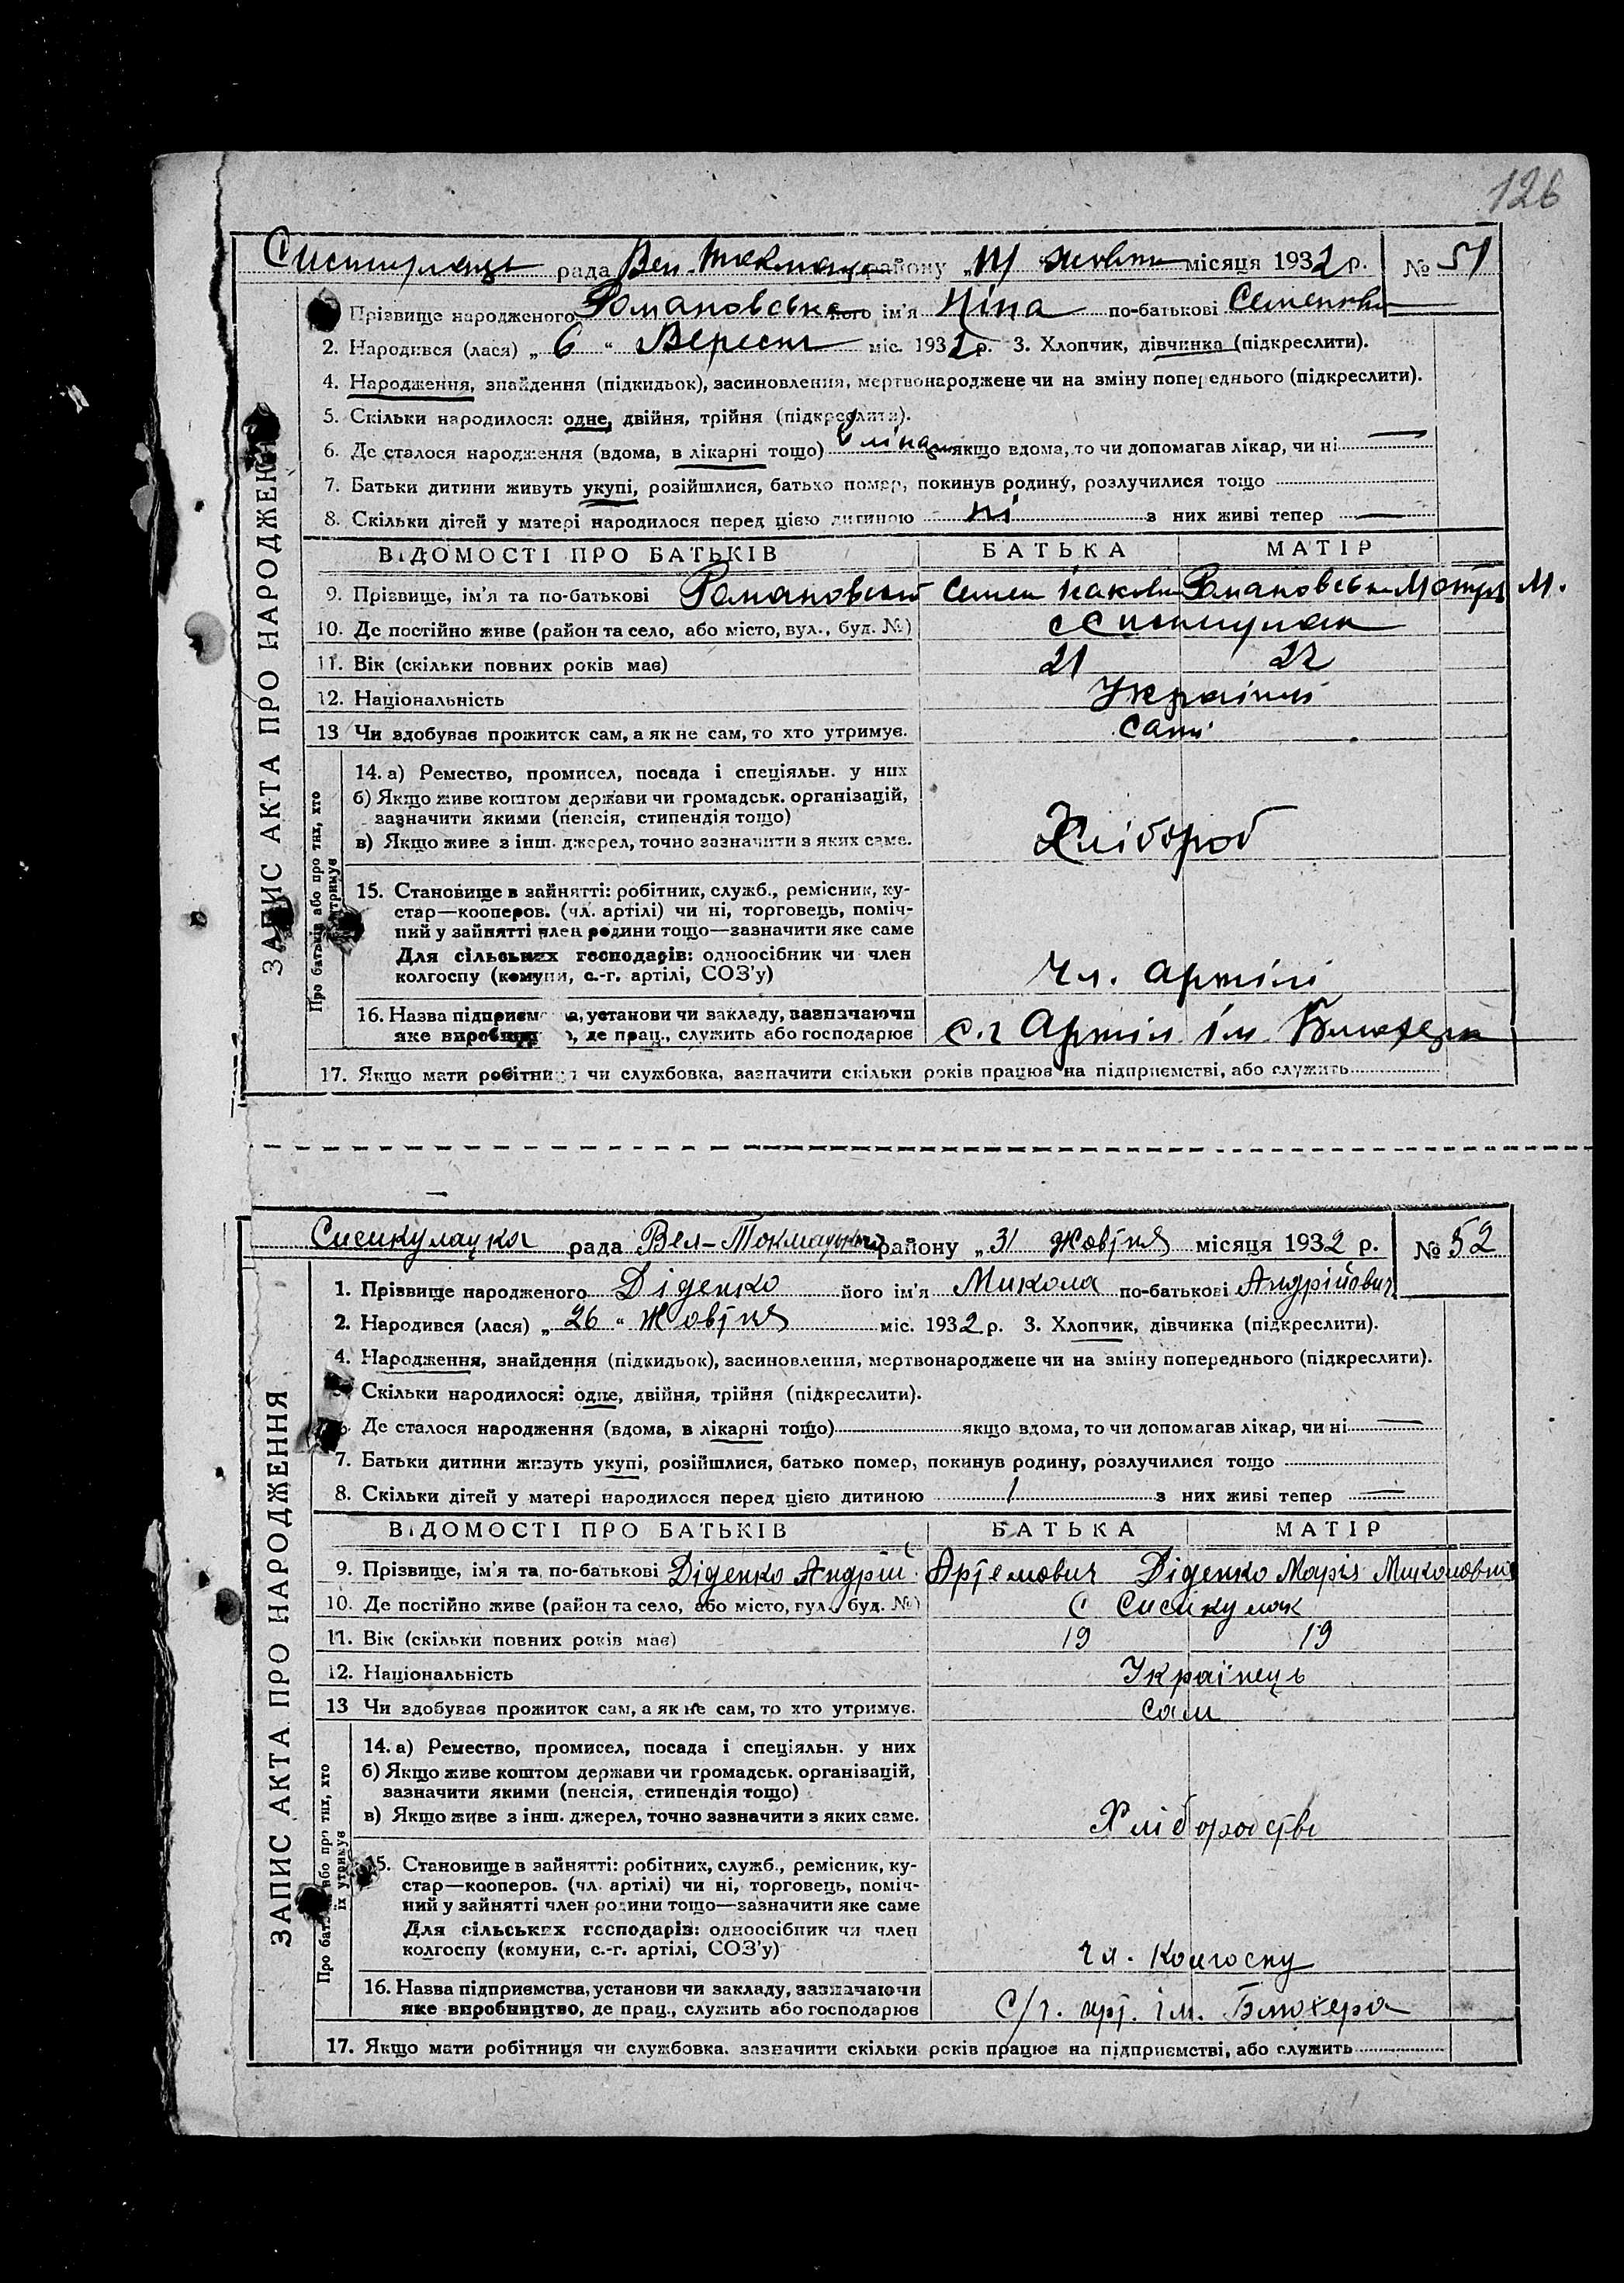 126
рада Вел. Токмацьк району „ жовтн місяця 1932 р. № 51
Прізвище народженого Романовська його ім'я Ніна по-батькові Семенівн
2. Народився (лася) „ 6 " Вересня міс. 1932 р. 3. Хлопчик, дівчинка (підкреслити).
4. Народження, знайдення (підкидьок), засиновлення, мертвонароджене чи на зміну попереднього (підкреслити).
5. Скільки народилося: одне, двійня, трійня (підкреслити).
6. Де сталося народження (вдома, в лікарні тощо) якщо вдома, то чи допомагав лікар, чи ні —
7. Батьки дитини живуть укупі, розійшлися, батько помер, покинув родину, розлучилися тощо
8. Скільки дітей у матері народилося перед цією дитиною ні з них живі тепер —
ВІДОМОСТІ ПРО БАТЬКІВ БАТЬКА МАТІР
9. Прізвище, ім'я та по-батькові Романовський Семен Якович Романовська Мотря М.
10. Де постійно живе (район та село, або місто, вул., буд. №)
11. Вік (скільки повних років має) 21 22
12. Національність Українці
13 Чи здобуває прожиток сам, а як не сам, то хто утримує. сами
14. а) Ремество, промисел, посада і спеціяльн. у них
б) Якщо живе коштом держави чи громадськ. організацій,
зазначити якими (пенсія, стипендія тощо)
в) Якщо живе з інш. джерел, точно зазначити з яких саме. Хлібороб
15. Становище в зайнятті: робітник, служб., ремісник, ку-
стар—кооперов. (чл. артілі) чи ні, торговець, поміч-
ний у зайнятті член родини тощо—зазначити яке саме
Для сільських господарів: одноосібник чи член
колгоспу (комуни, с.-г. артілі, СОЗ'у) Чл. артілі
16. Назва підприємства, установи чи закладу, зазначаючи
яке виробництво, де прац., служить або господарює с.г Артіл ім. Блюхера
17. Якщо мати робітниця чи службовка, зазначити скільки років працює на підприємстві, або служить
ЗАПИС АКТА ПРО НАРОДЖЕННЯ
Про батьків або про тих, хто
їх утримує
Сисикулацка рада Вел-Токмацький району „ 31 Жовтня місяця 1932 р. № 52
1. Прізвище народженого Діденко його ім'я Микола по-батькові Андрійович
2. Народився (лася) „ 26 " Жовтня міс. 1932 р. 3. Хлопчик, дівчинка (підкреслити).
4. Народження, знайдення (підкидьок), засиновлення, мертвонароджене чи на зміну попереднього (підкреслити).
Скільки народилося: одне, двійня, трійня (підкреслити).
Де сталося народження (вдома, в лікарні тощо) якщо вдома, то чи допомагав лікар, чи ні —
7. Батьки дитини живуть укупі, розійшлися, батько помер, покинув родину, розлучилися тощо
8. Скільки дітей у матері народилося перед цією дитиною 1 з них живі тепер —
ВІДОМОСТІ ПРО БАТЬКІВ БАТЬКА МАТІР
9. Прізвище, ім'я та по-батькові Діденко Андрій Артемович Діденко Марія Миколаївна
10. Де постійно живе (район та село, або місто, вул., буд. №) с Сисикулак
11. Вік (скільки повних років має) 19 19
12. Національність Українець
13 Чи здобуває прожиток сам, а як не сам, то хто утримує. сам
14. а) Ремество, промисел, посада і спеціяльн. у них
б) Якщо живе коштом держави чи громадськ. організацій,
зазначити якими (пенсія, стипендія тощо)
в) Якщо живе з інш. джерел, точно зазначити з яких саме. Хліборобство
15. Становище в зайнятті: робітник, служб., ремісник, ку-
стар—кооперов. (чл. артілі) чи ні, торговець, поміч-
ний у зайнятті член родини тощо—зазначити яке саме
Для сільських господарів: одноосібник чи член
колгоспу (комуни, с.-г. артілі, СОЗ'у) чл. колгоспу
16. Назва підприємства, установи чи закладу, зазначаючи
яке виробництво, де прац., служить або господарює С/г. арт. ім. Блюхера
17. Якщо мати робітниця чи службовка, зазначити скільки років працює на підприємстві, або служить
ЗАПИС АКТА ПРО НАРОДЖЕННЯ
Про батьків або про тих, хто
їх утримує